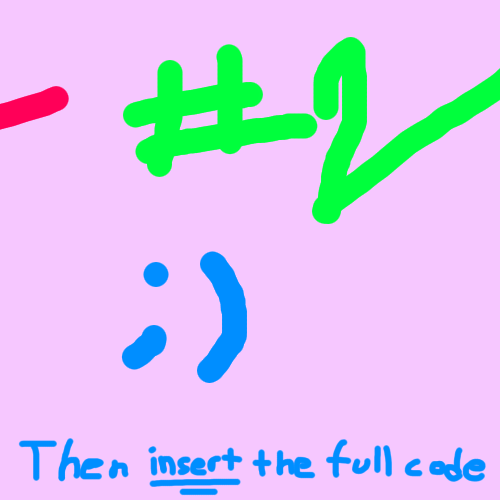 #2
;)
Then insert the full code